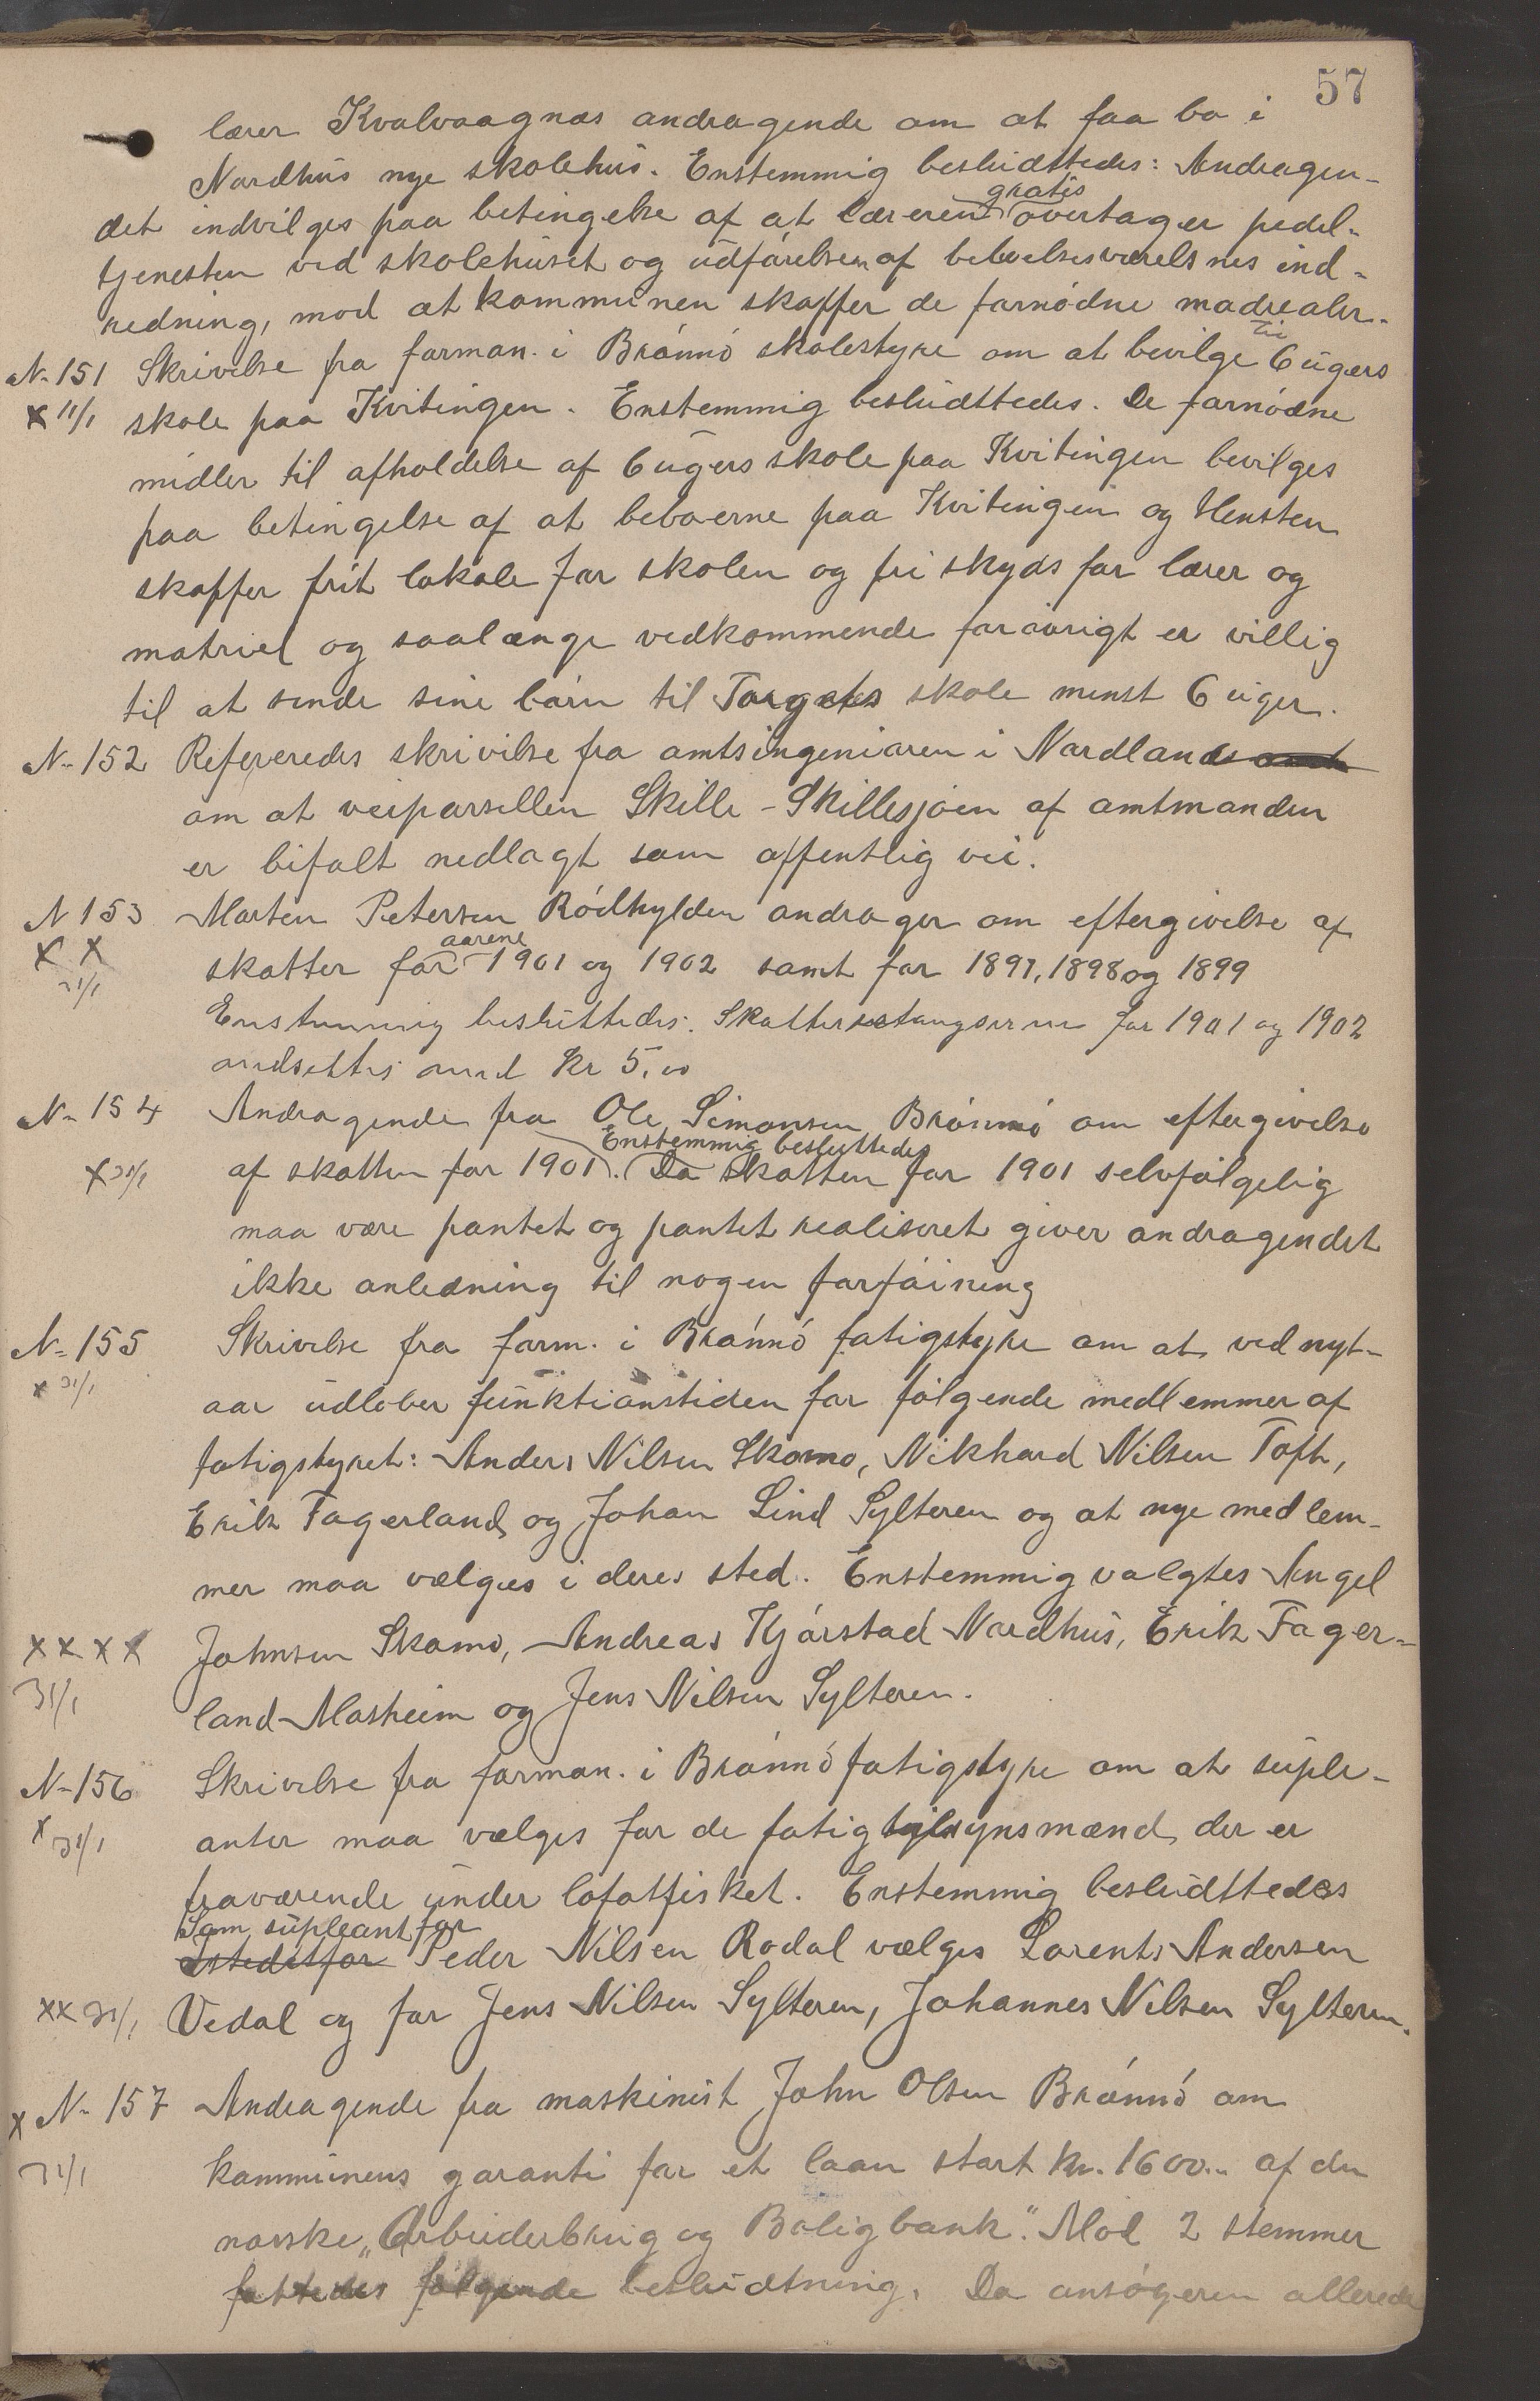 57
lærer Kvalvaagnæs andragende om at faa bo i
Nordhus nye skolehus. Enstemmig besludttedes: Andragen-
gratis
det indvilges paa betingelse af at læreren overtager pedel-
tjenesten ved skolehuset og udførelsen af beboelsesværelsnes ind-
redning, mod at kommunen skaffer de fornødne madrealer.
til
N. 151 Skrivelse fra forman. i Brønnø skolestyre om at bevilge 6 ugers
x 11/1 skole paa Kvitingen. Enstemmig besludttedes. De fornødne
midler til afholdelse af 6 ugers skole paa Kvitingen bevilges
paa betingelse af at beboerne paa Kvitingen og Hensten
skaffer frit lokale for skolen og fri skyds for lærer og
matriel og saalænge vedkommende forøvrigt er villig
til at sende sine børn til Torgets skole minst 6 uger.
N. 152 Refereredes skrivilse fra amtsingeniøren i Nordlands amt
om at veiparsellen Skille - Skillesjøen af amtmanden
er bifalt nedlagt som offentlig vei.
N 153 Morten Petersen Rødhylden andrager om eftergivelse af
aarene
x x skatter for 1901 og 1902 samt for 1897, 1898 og 1899
31/1
Enstemmig besluttedes: Skatterestangserne for 1901 og 1902
nedsettes med kr 5,00
N. 154 Andragende fra Ole Simonsen Brønnø om eftergivelse
Enstemmig besluttedes
x 31/1 af skatten for 1901. Da skatten for 1901 selvfølgelig
maa være pantet og pantet realiseret giver andragendet
ikke anledning til nogen forføining
N. 155 Skrivelse fra form. i Brønnø fatigstyre om at ved nyt-
x 31/1 aar udløber funktionstiden for følgende medlemmer af
fatigstyret: Anders Nilsen Skomo, Nikhard Nilsen Toft,
Erik Fagerland og Johan Lind Sylteren og at nye medlem-
mer maa vælges i deres sted. Enstemmig valgtes Angel
x x x x Johnsen Skomo, Andreas Kjørstad Nordhus, Erik Fager-
31/1 land Mosheim og Jens Nilsen Sylteren.
N. 156 Skrivelse fra forman. i Brønnø fatigstyre om at suple-
x 31/1 anter maa vælges for de fatigtilsynsmænd der er
fraværende under lofotfisket. Enstemmig besludttedes
Som supleant for
Istedetfor Peder Nilsen Rodal vælges Lorents Andersen
xx 31/1 Vedal og for Jens Nilsen Sylteren, Johannes Nilsen Sylteren.
x N. 157 Andragende fra maskinist John Olsen Brønnø om
31/1 kommunens garanti for et laan stort kr. 1600.. af den
norske „Arbeiderbrug og Boligbank". Mod 2 stemmer
fattedes følgende besludtning. Da ansøgeren allerede